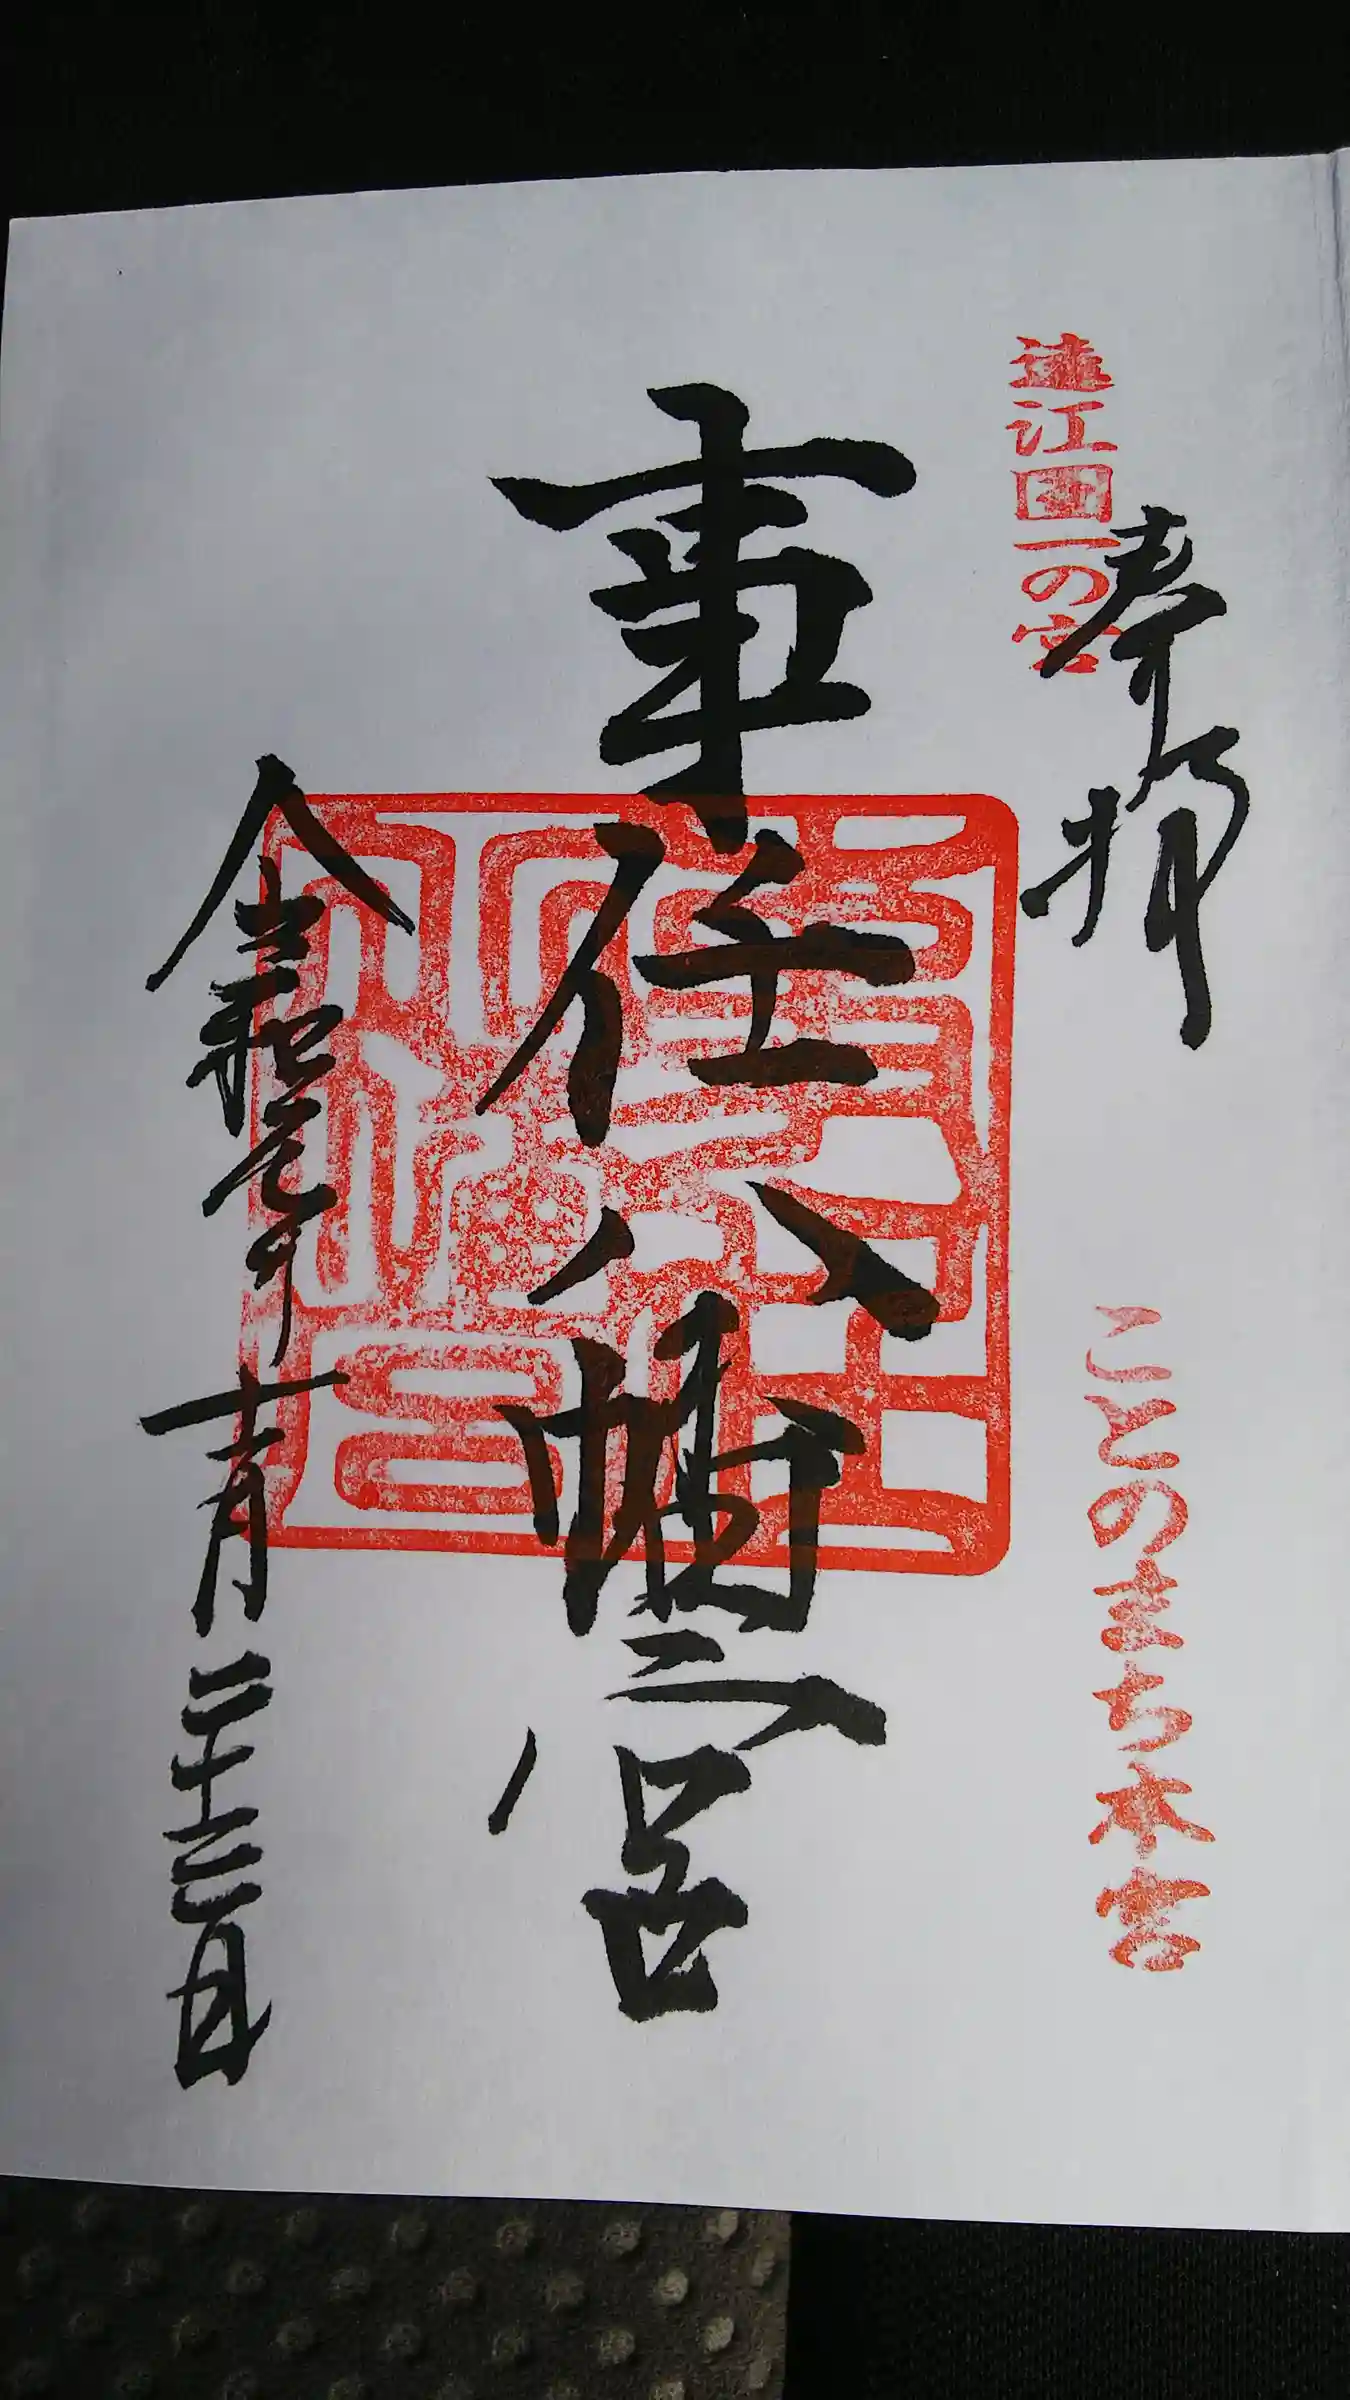 遠江国一の宮
奉拝
ことのまち本宮
事任八幡宮
令和元年十一月二十三日